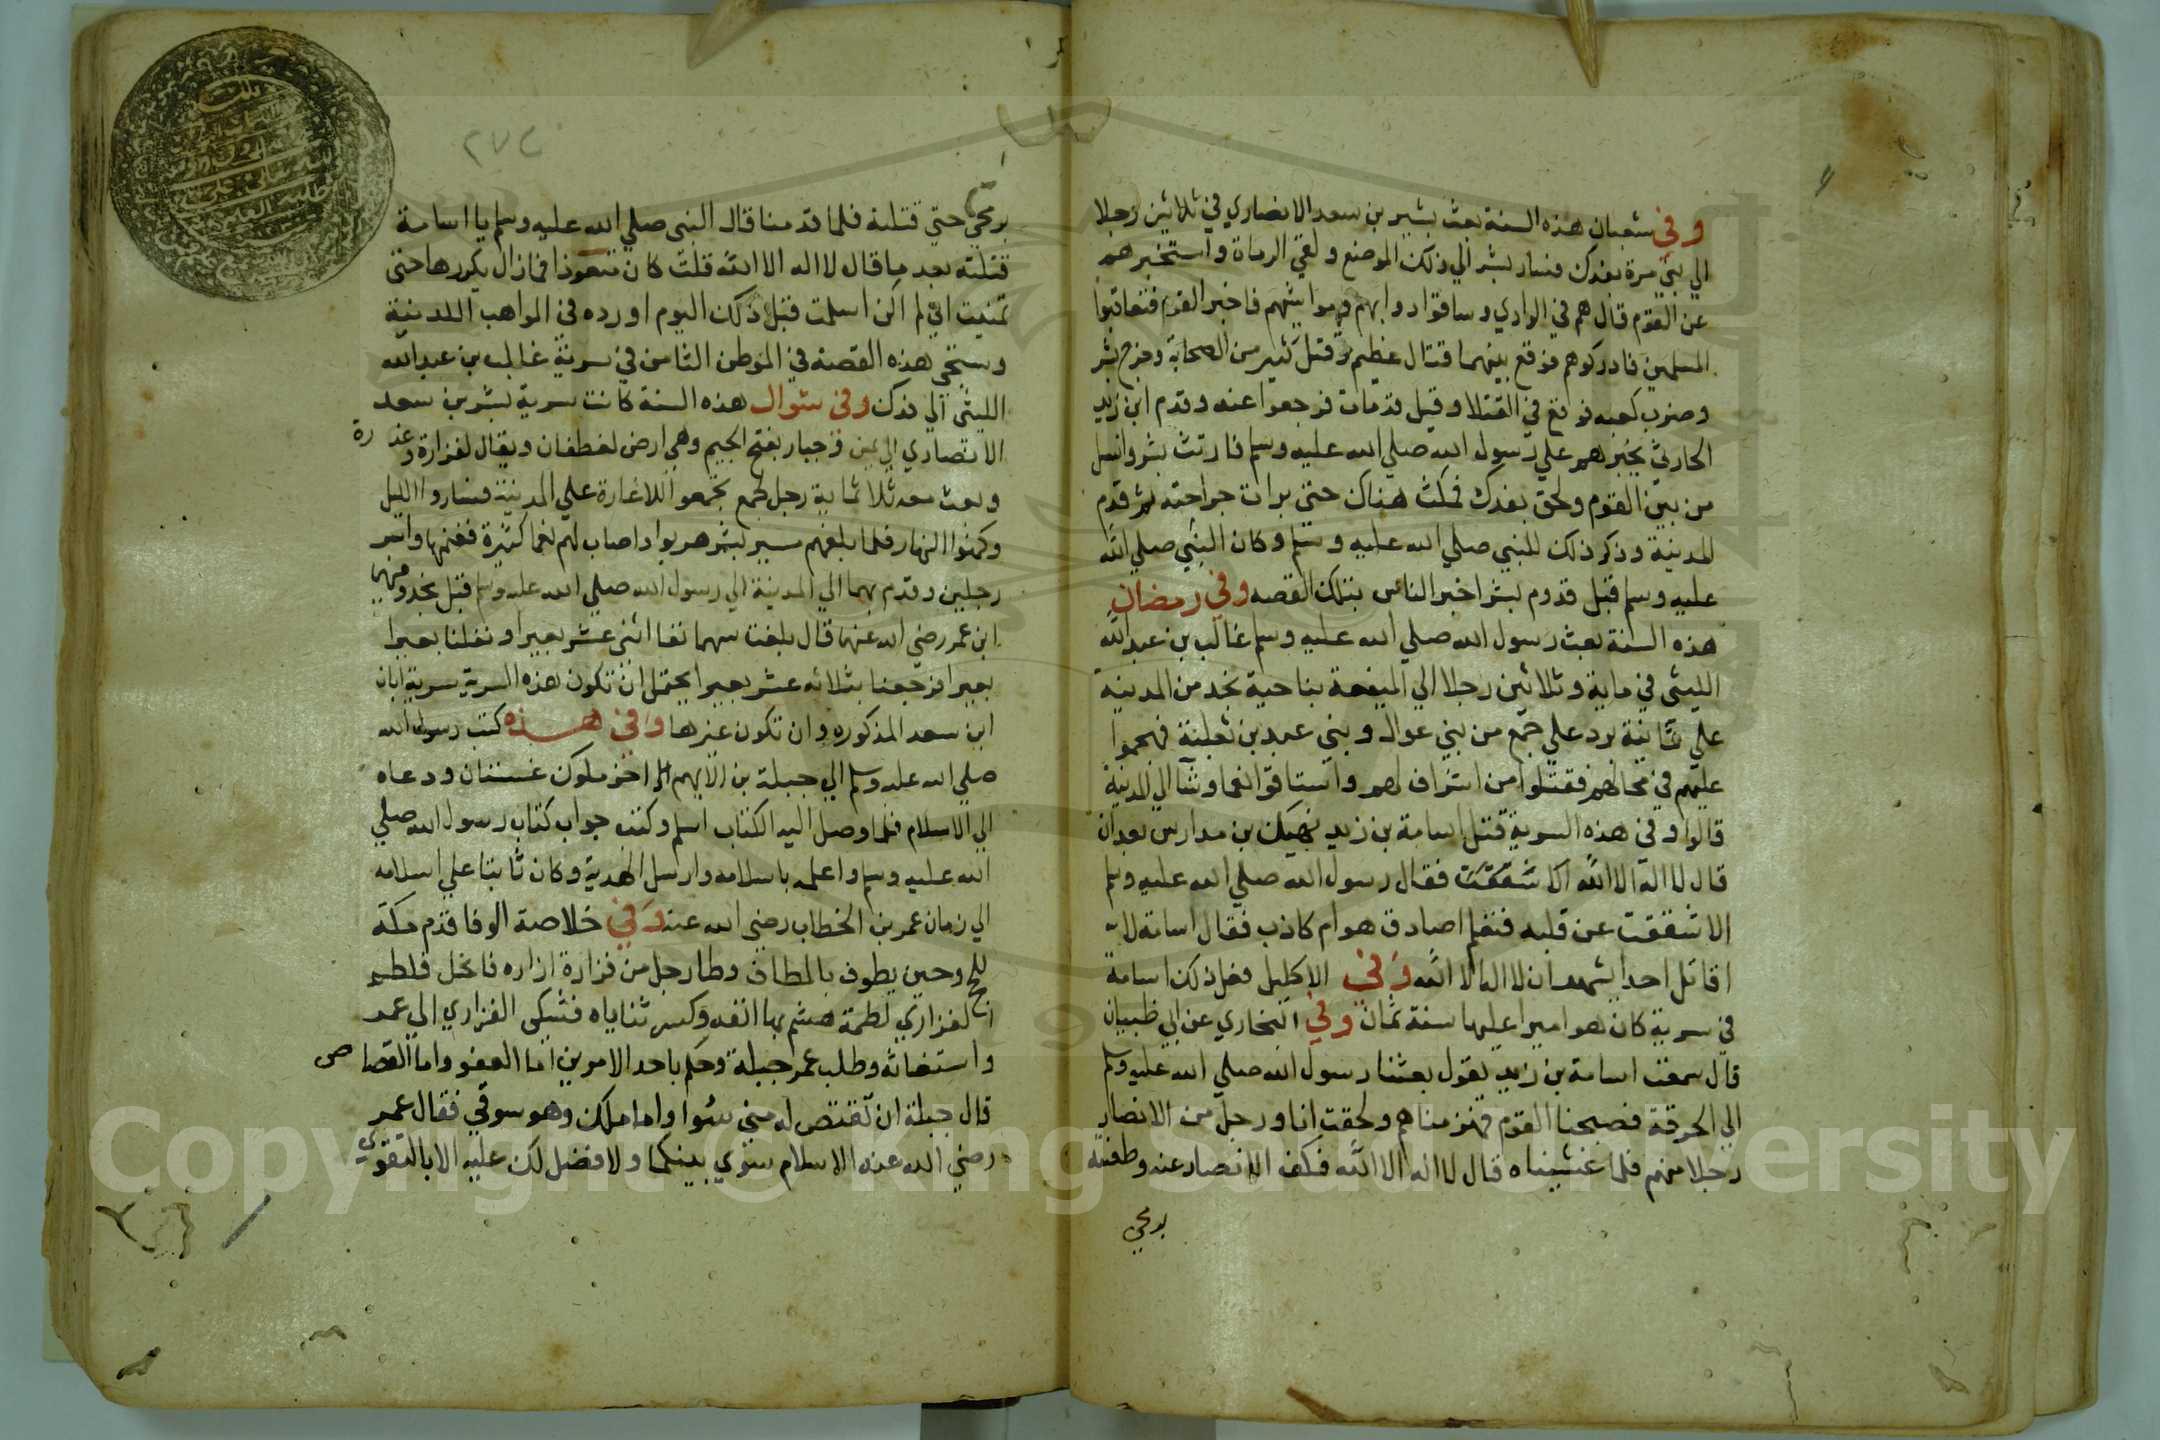 وفي شعبان هذه السنة بعث بشير بن سعد الانصاري في ثلاثين رجلا
الي بني مرة بفدك فسار بشر الي ذلك الموضع ولقي الرعاة واستخبرهم
عن القوم قال هم في الوادي وساقوا دوابهم ومواشيهم فاخبر القوم فتعاقبوا
المسلمين فادركوهم فوقع بينهما قتال عظيم وقتل كثير من الصحابة وجرح بشر
وضرب كعبه فوقع في القتلا وقيل قد مات فرجعوا عنه وقدم ابن زيد
الحارثي بخبرهم علي رسول الله صلي الله عليه وسلم فارتث بشر وانسل
من بين القوم ولحق بفدك فمكث هناك حتي برات جراحته ثم قدم
المدينة وذكر ذلك للنبي صلي الله عليه وسلم وكان النبي صلي الله
عليه وسلم قبل قدوم بشر اخبر الناس بتلك القصه وفي رمضان
هذه السنة بعث رسول الله صلي الله عليه وسلم غالب بن عبد الله
الليثي في ماية وثلاثين رجلا الي الميفعة بناحية نجد من المدينة
علي ثمانية برد علي جمع من بني عوال وبني عبد بن ثعلبة فهجموا
عليهم في محالهم فقتلوا من اشراف لهم واستاقوا نعما وشآ الي المدينة
قالوا وفي هذه السرية قتل اسامة بن زيد نهيك بن مدارس بعد ان
قال لا اله الا الله الا شققت فقال رسول الله صلي الله عليه وسلم
الا شققت عن قلبه فتعلم اصادق هو ام كاذب فقال اسامة لا
اقاتل احدا يشهد ان لا اله الا الله وفي الاكليل فعل ذلك اسامة
في سرية كان هو اميرا عليها سنة ثمان وفي البخاري عن ابي ظبيان
قال سمعت اسامة بن زيد يقول بعثنا رسول الله صلي الله عليه وسلم
الي الحرقة فصبحنا القوم فهزمناهم ولحقت انا ورجل من الانصار
رجلا منهم فلما غشيناه قال لا اله الا الله فكف الانصار عنه وطعنته
برمحي
٢٧٢
برمحي حتي قتلته فلما قدمنا قال النبي صلي الله عليه وسلم يا اسامة
قتلته بعد ما قال لا اله الا الله قلت كان متعوذا فما زال يكررها حتي
تمنيت اني لم اكن اسلمت قبل ذلك اليوم اورده في المواهب اللدنية
وستجي هذه القصة في الموطن الثامن في سرية غالب بن عبد الله
الليثي الي فدك وفي شوال هذه السنة كانت سرية بشر بن سعد
الانصاري الي يمن وجبار بفتح الجيم وهي ارض لغطفان ويقال لفزارة وعذرة
وبعث معه ثلاثماية رجل لجمع تجمعوا للاغارة علي المدينة فساروا الليل
وكمنوا النهار فلما بلغهم مسير بشر هربوا واصاب لهم نعما كثيرة فغنمها واسر
رجلين وقدم بهما الي المدينة الي رسول الله صلي الله عليه وسلم قبل نجد ومنها
ابن عمر رضي الله عنهما قال بلغت سهماننا اثني عشر بعيرا ونفلنا بعيرا
بعيرا فرجعنا بثلاثه عشر بعيرا يحتمل ان تكون هذه السرية سرية ابان
ابن سعد المذكوره وان تكون غيرها وفي هذه كتب رسول الله
صلي الله عليه وسلم الي جبلة بن الايهم اخر ملوك غسان ودعاه
الي الاسلام فلما وصل اليه الكتاب اسلم وكتب جواب كتاب رسول الله صلي
الله عليه وسلم واعلمه باسلامه وارسل الهدية وكان ثابتا علي اسلامه
الي زمان عمر بن الخطاب رضي الله عنه وفي خلاصة الوفا قدم مكة
للحج وحين يطوف بالمطاف وطا رجل من فزارة ازاره فانحل فلطم
الفزاري لطمة هشم بها انفه وكسر ثناياه فشكى الفزاري الي عمر
واستغاثه وطلب عمر جبلة وحكم باحد الامرين اما العفو واما القصاص
قال جبلة ان تقتص له مني سوا واما ملك وهو سوقي فقال عمر
رضي الله عنه الاسلام سوي بينكما ولا فضل لك عليه الا بالتقوي
Copyright © King Saud University